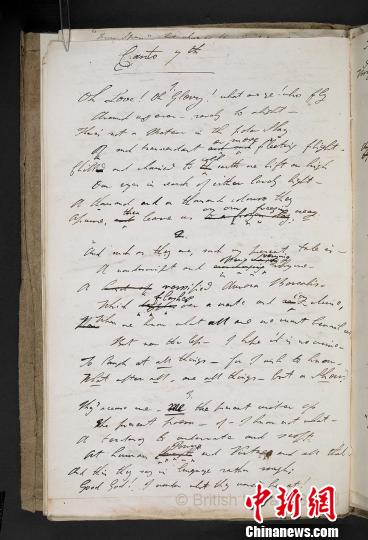 Canto 7th
1
Oh Love! Oh Glory! what are ye! who fly
Around us ever – rarely to alight –
There's not a Meteor in the polar Sky
Of such transcendent and more fleeting flight –
Chill and chained to cold earth we lift on high
Our eyes in search of either lovely light –
A thousand and a thousand colours they
Assume, then leave us on our freezing way
2
And such as they are, such my present tale is –
A nondescript and ever varying rhyme –
A versified Aurora Borealis –
Which flashes over a waste and icy clime,
When we know what all are we must bewail us,
But I hope it is no crime –
To laugh at all things – for I wish to know –
What after all, are all things – but a Show?
3
They accuse me – me the present writer of
The present poem – of – I know not what –
A tendency to underrate and scoff
At human power and Virtue and all that
And this they say in language rather rough;
Good God! I wonder what they would be at!
© British
中新网
Chinanews.com